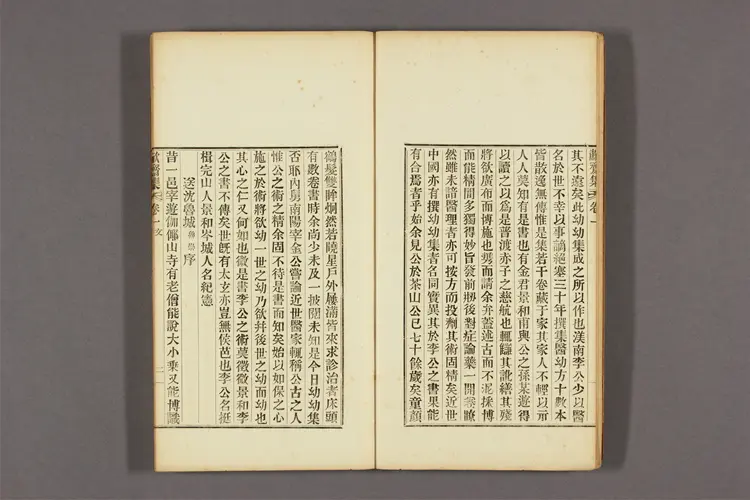 集 卷一
其不遠矣此幼幼集成之所以作也渼南李公少以醫
名於世不幸以事謫絕塞三十年撰集醫幼方十數本
皆散逸無傳惟是集若干卷藏于家其家人不輕以示
人人莫知有是書也有金君景和甫與公之孫某遊得
以讀之以爲是普渡赤子之慈航也輒讎其訛繕其殘
將欲廣布而博施也 而請余弁蓋述古而不泥採博
而能精間多獨得 妙旨發前 後對症論藥一開卷瞭
然雖未諳醫理者亦可按方而投劑其術固精矣近世
中國亦有撰幼幼集者名同實異其於李公之書果能
有合焉者乎始余見公於茶山公已七十餘歲矣童顔
鶴髮雙眸烱然若曉星戶外屨滿皆來求診治者床頭
有數卷書時余尚少未及一披閱未知是今日幼幼集
否耶內舅南陽宰金公嘗論近世醫家輒稱公古之人
惟公之術之精余固不待是書而知矣始以如保之心
施之於術將欲幼一世之幼乃欲幷後世之幼而幼也
其心之仁又何如也微是書李公之術莫徵微景和李
公之書不傳矣世旣有太玄亦豈無侯芭也李公名挺
楫完山人景和岑城人名紀憲
送沈魯城 序
昔一邑宰遊伽倻山寺有老僧能說大小乘又能博識
齋集 卷一 文